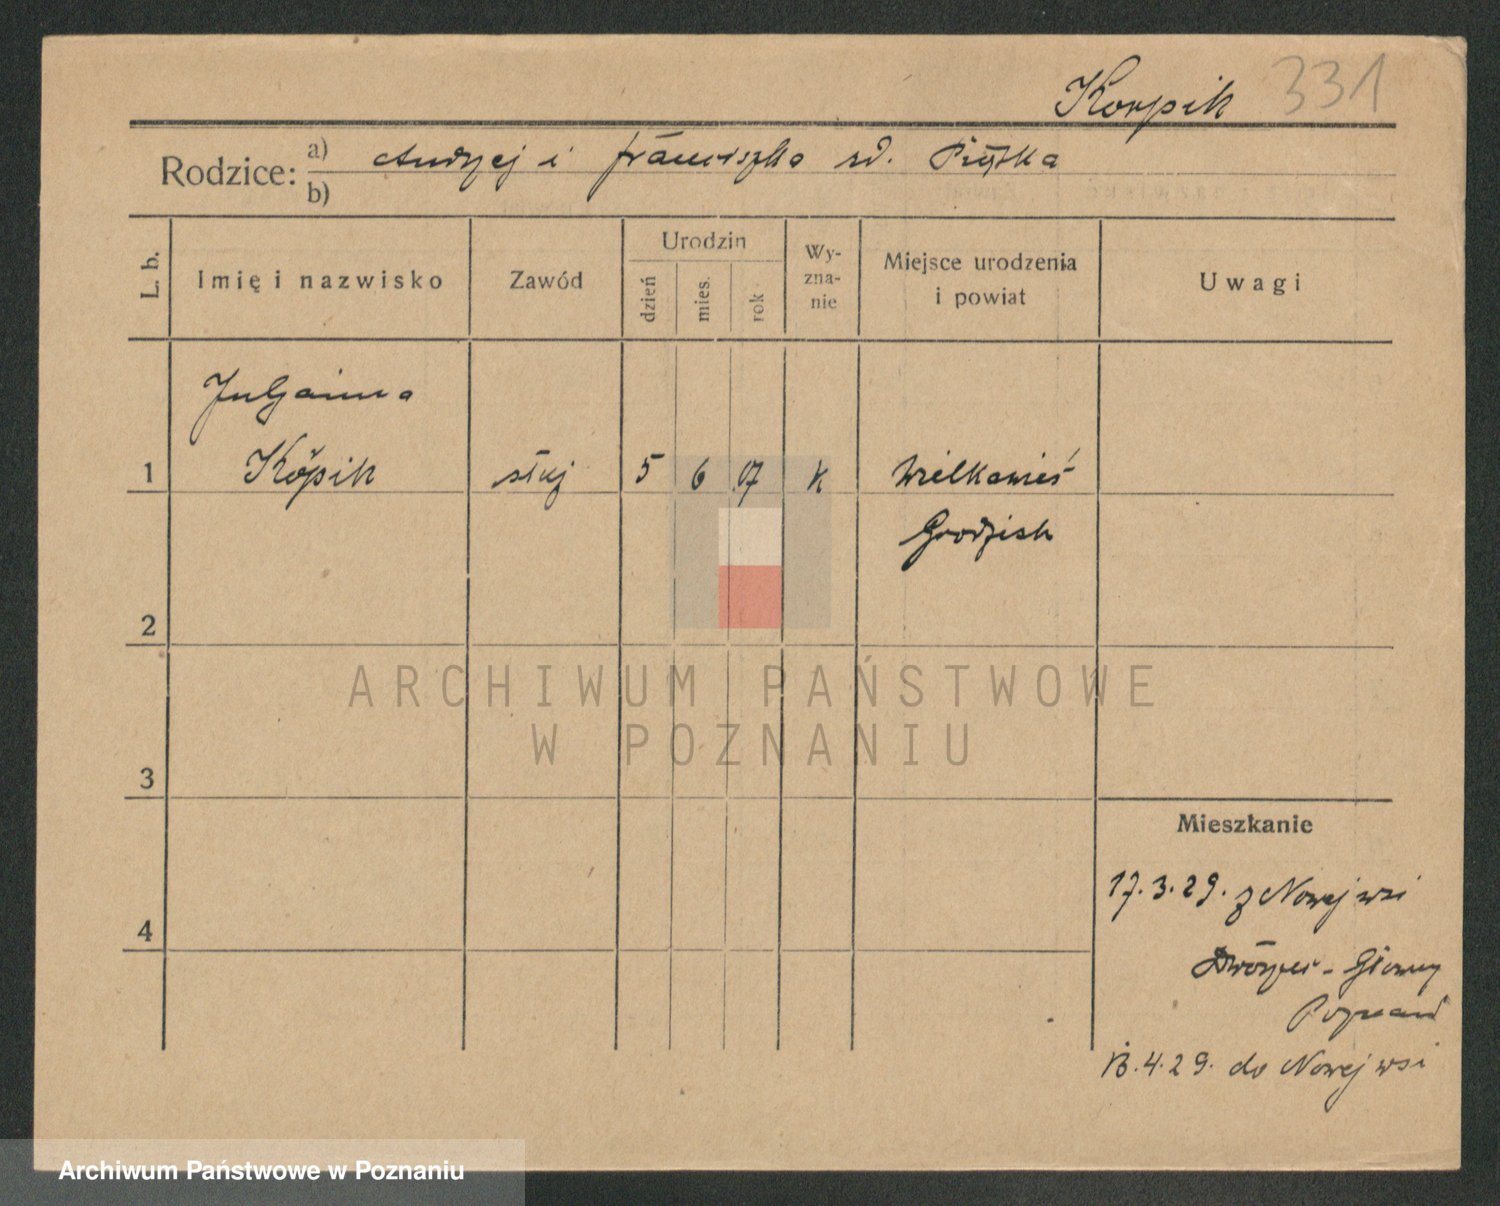 Korpik 331
Rodzice: a) Andrzej i Franciszka zd. Piątka
b)
L. b. Imię i nazwisko Zawód Urodzin dzień mies. rok Wy-zna-nie Miejsce urodzenia i powiat Uwagi
Juljanna
1 Kópik służ 5 6 07 k Wielkawieś
Grodzisk
2
ARCHIWUM PAŃSTWOWE
W POZNANIU
3
Mieszkanie
17.3.29. z Nowej wsi
4
Dworzec - Główny
Poznań
13.4.29. do Nowej wsi
Archiwum Państwowe w Poznaniu